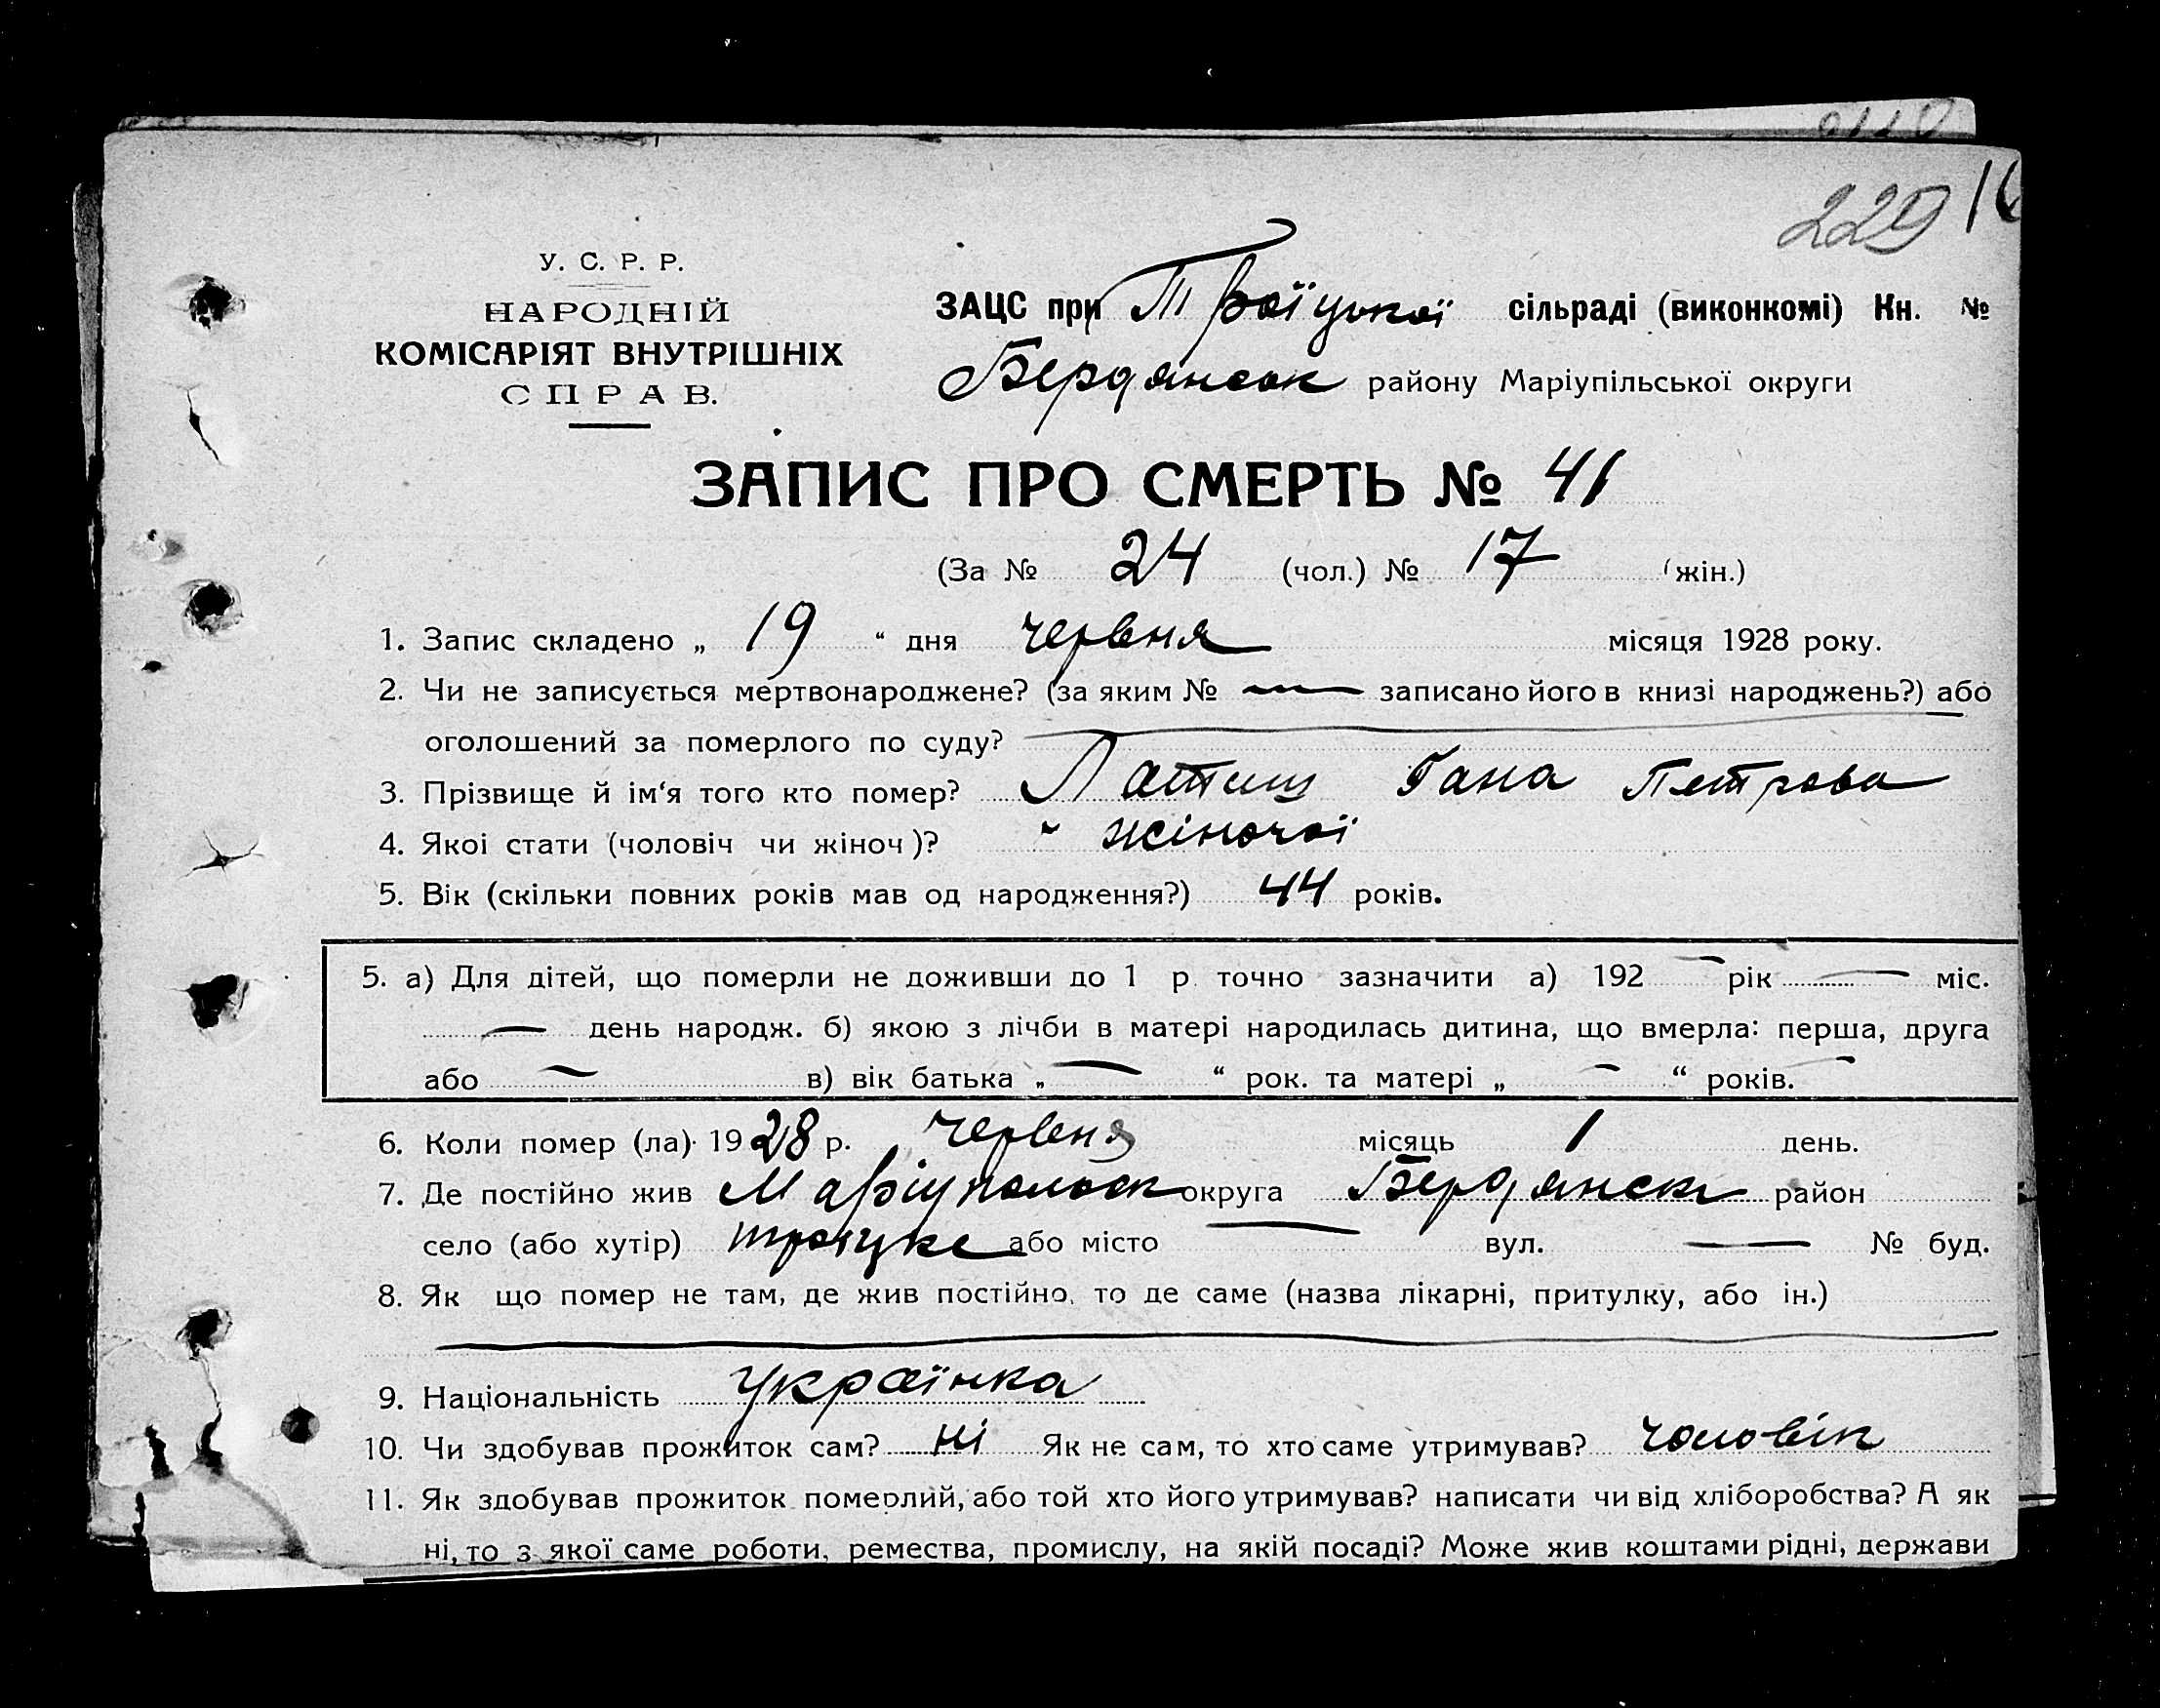 229
У. С. Р. Р.
НАРОДНІЙ
КОМІСАРІЯТ ВНУТРІШНІХ
СПРАВ.
ЗАЦС при Троїцької сільраді (виконкомі) Кн. №
Бердянськ району Маріупільської округи
ЗАПИС ПРО СМЕРТЬ № 41
(За № 24 (чол.) № 17 (жін.)
1. Запис складено „ 19 “ дня червня місяця 1928 року.
2. Чи не записується мертвонароджене? (за яким № — записано його в книзі народжень?) або
оголошений за померлого по суду? —
3. Прізвище й ім‘я того кто помер? Латиш Гана Петрова
4. Якоі стати (чоловіч чи жіноч)? жіночої
5. Вік (скільки повних років мав од народження?) 44 років.
5. а) Для дітей, що померли не доживши до 1 р. точно зазначити а) 192 — рік — міс.
— день народж. б) якою з лічби в матері народилась дитина, що вмерла: перша, друга
або — в) вік батька „ — “ рок. та матері „ — “ років.
6. Коли помер (ла) 1928 р. червня місяць 1 день.
7. Де постійно жив Маріупольськ округа Бердянськ район
село (або хутір) Троіцке або місто — вул. — № буд.
8. Як що помер не там, де жив постійно, то де саме (назва лікарні, притулку, або ін.)
9. Національність Українка
10. Чи здобував прожиток сам? ні Як не сам, то хто саме утримував? чоловік
11. Як здобував прожиток померлий, або той хто його утримував? написати чи від хліборобства? А як
ні, то з якої саме роботи, ремества, промислу, на якій посаді? Може жив коштами рідні, держави